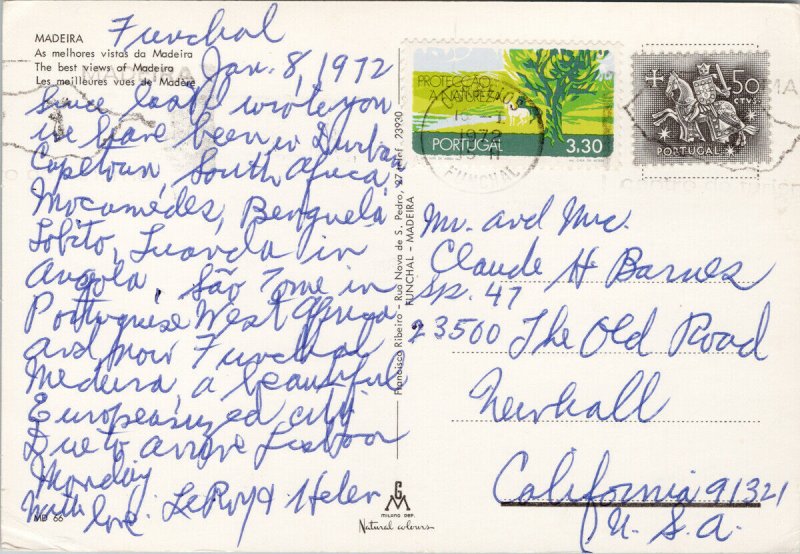 MADEIRA
As melhores vistas da Madeira
The best views of Madeira
Les meilleures vues de Madère
Funchal
Jan. 8, 1972
Since last wrote you
we have been in Durba
Capetown, South Africa,
Mocamédes, Benguela
Lobito, Luanda in
Angola, São Tome in
Portuguese West Africa
and now Funchal
Madeira, a beautiful
Europeanized city
Due to arrive Lisboa
Monday
With love LeRoy & Helen
MD 66
Francisco Ribeiro - Rua Nova de S. Pedro, 27
FUNCHAL - MADEIRA
23930
MILANO DEP.
Natural colours
PROTECÇÃO
NATUREZA
PORTUGAL 3,30
1972
FUNCHAL
50
CTVS
PORTUGAL
Mr. and Mrs.
Claude H Barnes
Sp. 47
23500 The Old Road
Newhall
California 91321
U.S.A.